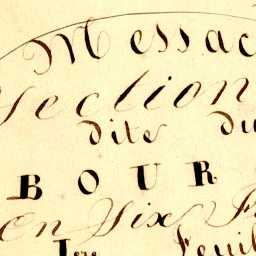 Messac
Section
dite du
BOUR
En Six F
1re Feuil